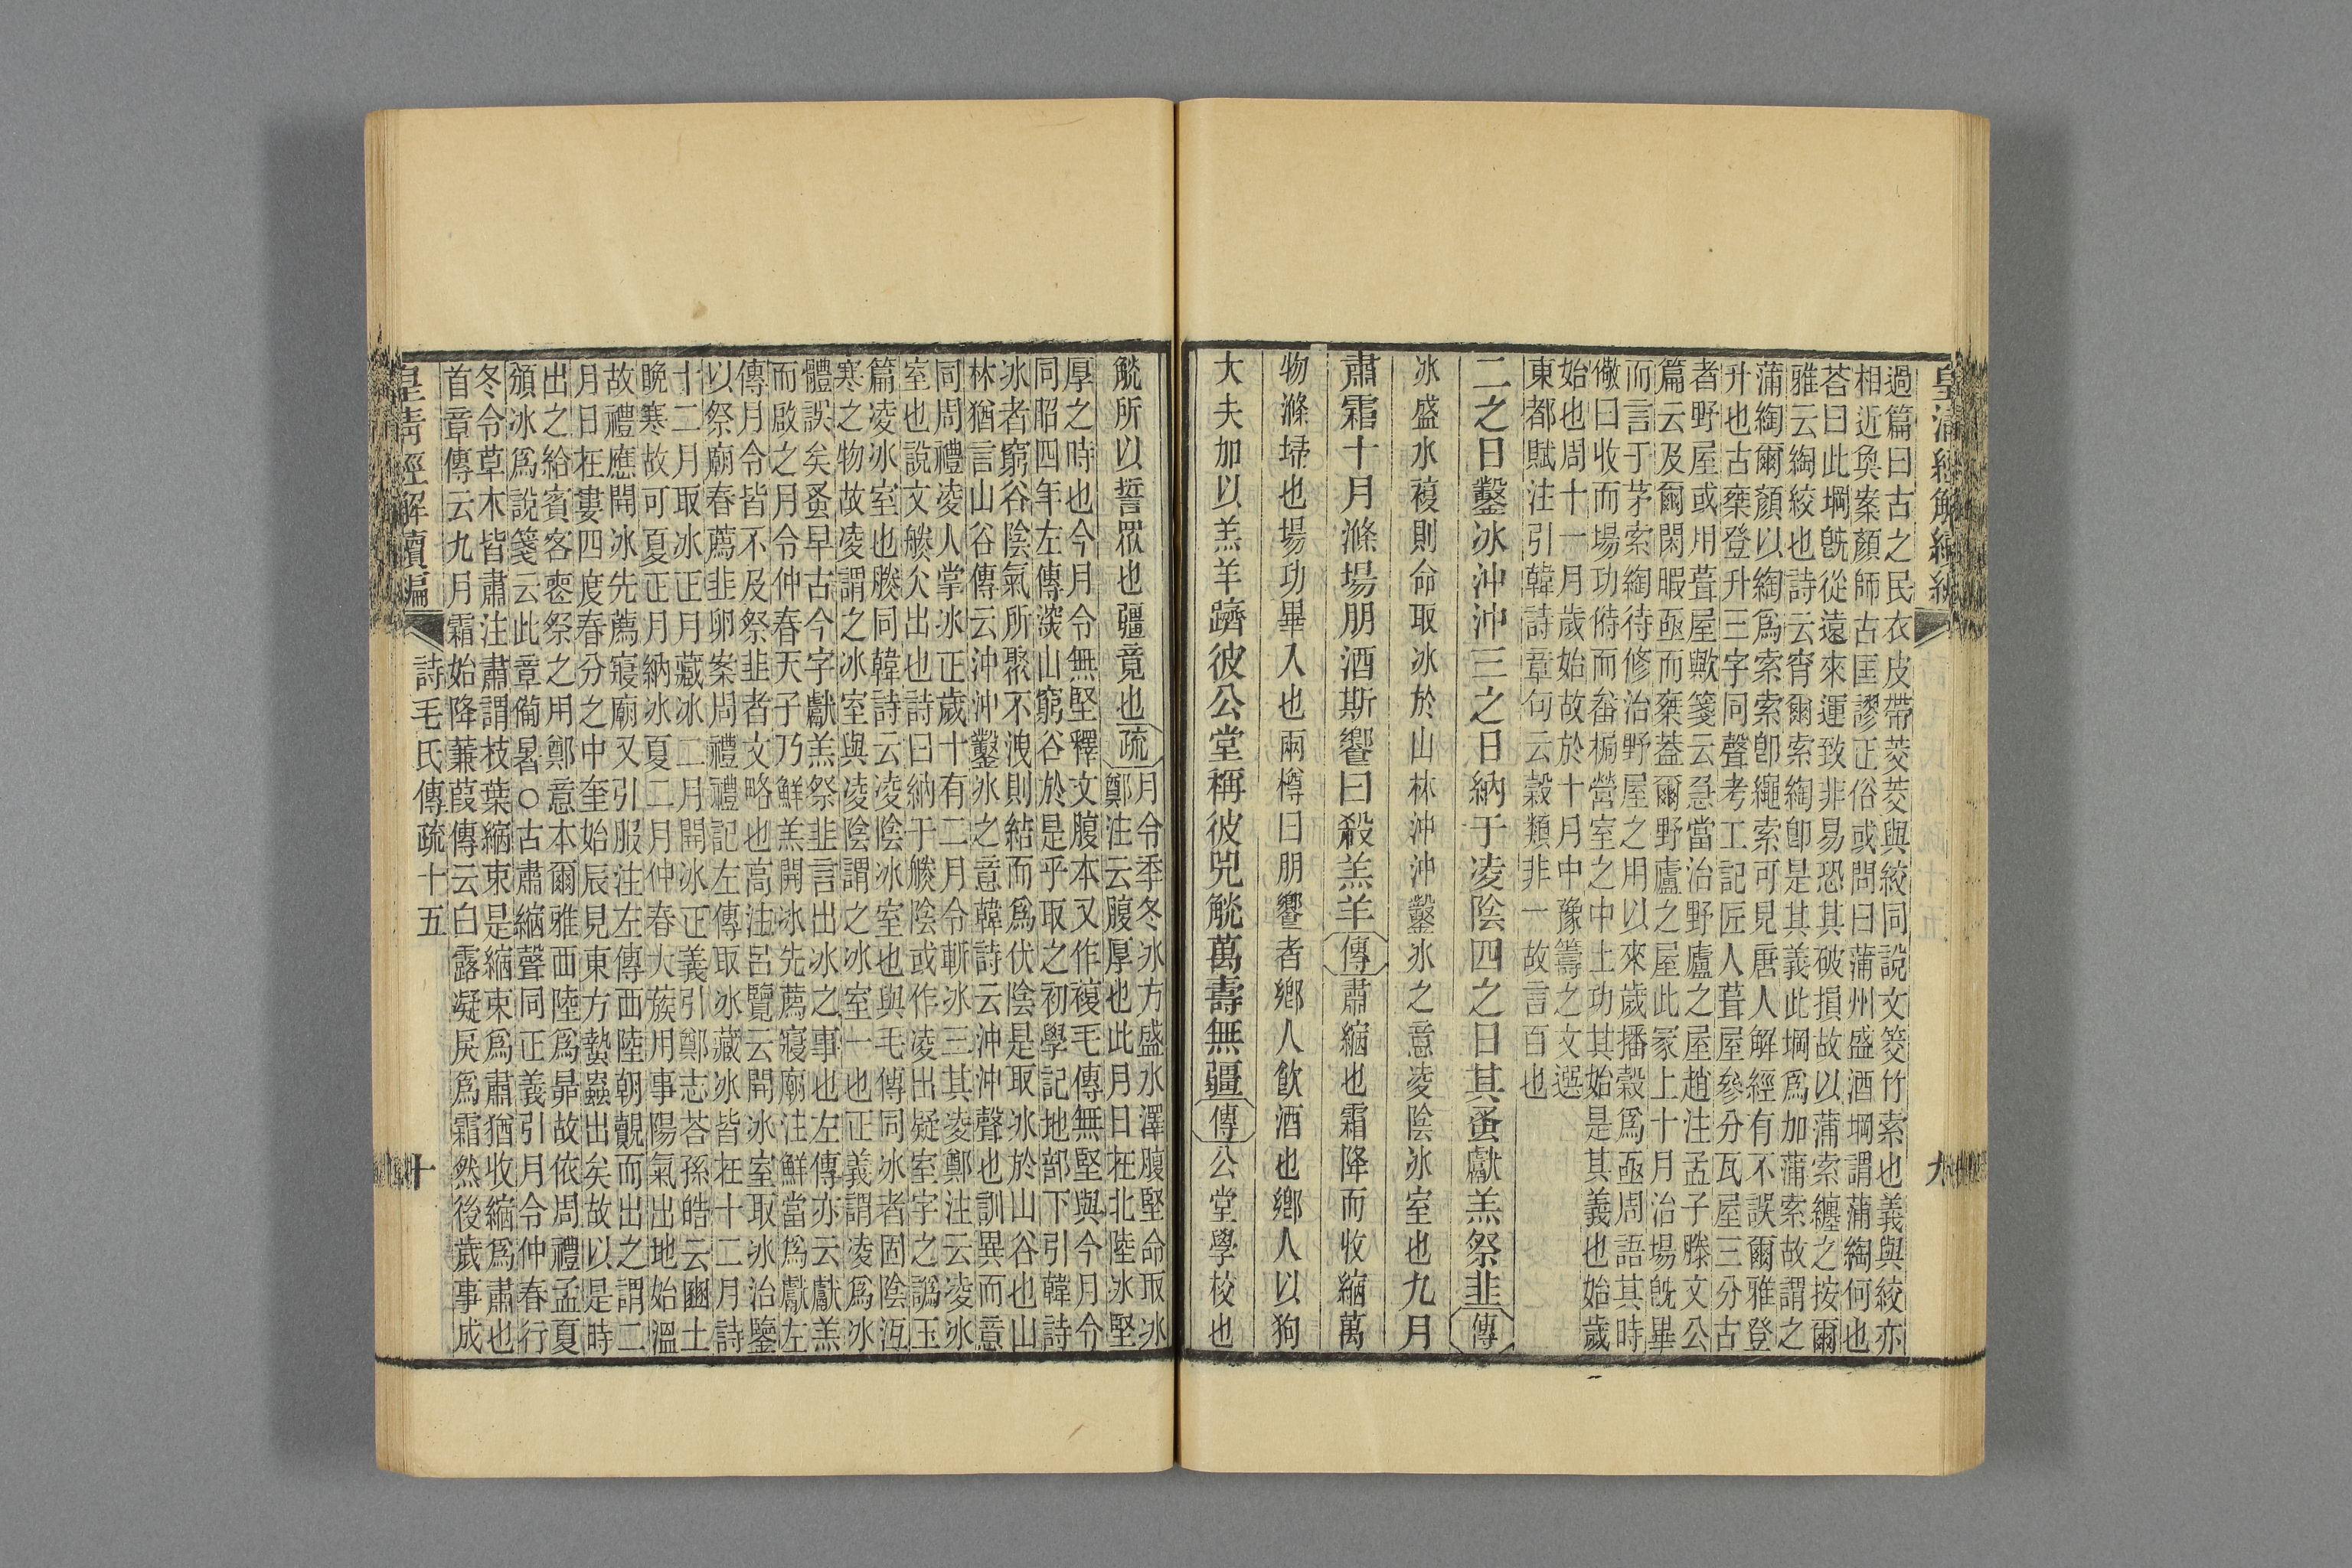 皇清經解續編
九
過篇曰古之民衣皮帶茭茭與絞同說文筊竹索也義與絞亦
相近奐案顏師古匡謬正俗或問曰蒲州盛酒堈謂蒲綯何也
荅曰此堈旣從遠來運致非易恐其破損故以蒲索纏之按爾
雅云綯絞也詩云宵爾索綯卽是其義此堈爲加蒲索故謂之
蒲綯爾顏以綯爲索索卽繩索可見唐人解經有不誤爾雅登
升也古椉登升三字同聲考工記匠人葺屋參分瓦屋三分古
者野屋或用葺屋歟箋云急當治野廬之屋趙注孟子滕文公
篇云及爾閑暇亟而椉葢爾野廬之屋此冢上十月治場旣畢
而言于茅索綯待修治野屋之用以來歲播榖爲亟周語其時
儆曰收而場功偫而畚梮營室之中土功其始是其義也始歲
始也周十一月歲始故於十月中豫籌之文選
東都賦注引韓詩章句云榖類非一故言百也
二之日鑿冰沖沖三之日納于凌陰四之日其蚤獻羔祭韭傳
冰盛水複則命取冰於山林沖沖鑿冰之意凌陰冰室也九月
肅霜十月滌場朋酒斯饗曰殺羔羊傳肅縮也霜降而收縮萬
物滌埽也場功畢入也兩樽曰朋饗者鄉人飮酒也鄉人以狗
大夫加以羔羊躋彼公堂稱彼兕觥萬壽無疆傳公堂學校也
觥所以誓眾也疆竟也疏月令季冬冰方盛水澤腹堅命取冰
鄭注云腹厚也此月日在北陸冰堅
厚之時也今月令無堅釋文腹本又作複毛傳無堅與今月令
同昭四年左傳深山窮谷於是乎取之初學記地部下引韓詩
冰者窮谷陰氣所聚不洩則結而爲伏陰是取冰於山谷也山
林猶言山谷傳云沖沖鑿冰之意韓詩云沖沖聲也訓異而意
同周禮凌人掌冰正歲十有二月令斬冰三其凌鄭注云凌冰
室也說文㱦仌出也詩曰納于㱦陰或作凌出疑室字之譌玉
篇凌冰室也㱦同韓詩云凌陰冰室也與毛傳同冰者固陰沍
寒之物故凌謂之冰室與凌陰謂之冰室一也正義謂凌爲冰
體誤矣蚤早古今字獻羔祭韭言出冰之事也左傳亦云獻羔
而啟之月令仲春天子乃鮮羔開冰先薦寢廟注鮮當爲獻左
傳月令皆不及祭韭者文略也高注呂覽云開冰室取冰治鑒
以祭廟春薦韭卵案周禮禮記左傳取冰藏冰皆在十二月詩
十二月取冰正月藏冰二月開冰正義引鄭志荅孫皓云豳土
晚寒故可夏正月納冰夏二月仲春大蔟用事陽氣出地始溫
故禮應開冰先薦寢廟又引服注左傳西陸朝覿而出之謂二
月日在婁四度春分之中奎始辰見東方蟄蟲出矣故以是時
出之給賓客喪祭之用鄭意本爾雅西陸爲昴故依周禮孟夏
頒冰爲說箋云此章備暑○古肅縮聲同正義引月令仲春行
冬令草木皆肅注肅謂枝葉縮束是縮束爲肅猶收縮爲肅也
首章傳云九月霜始降蒹葭傳云白露凝戾爲霜然後歲事成
皇清經解續編
詩毛氏傳疏十五
十